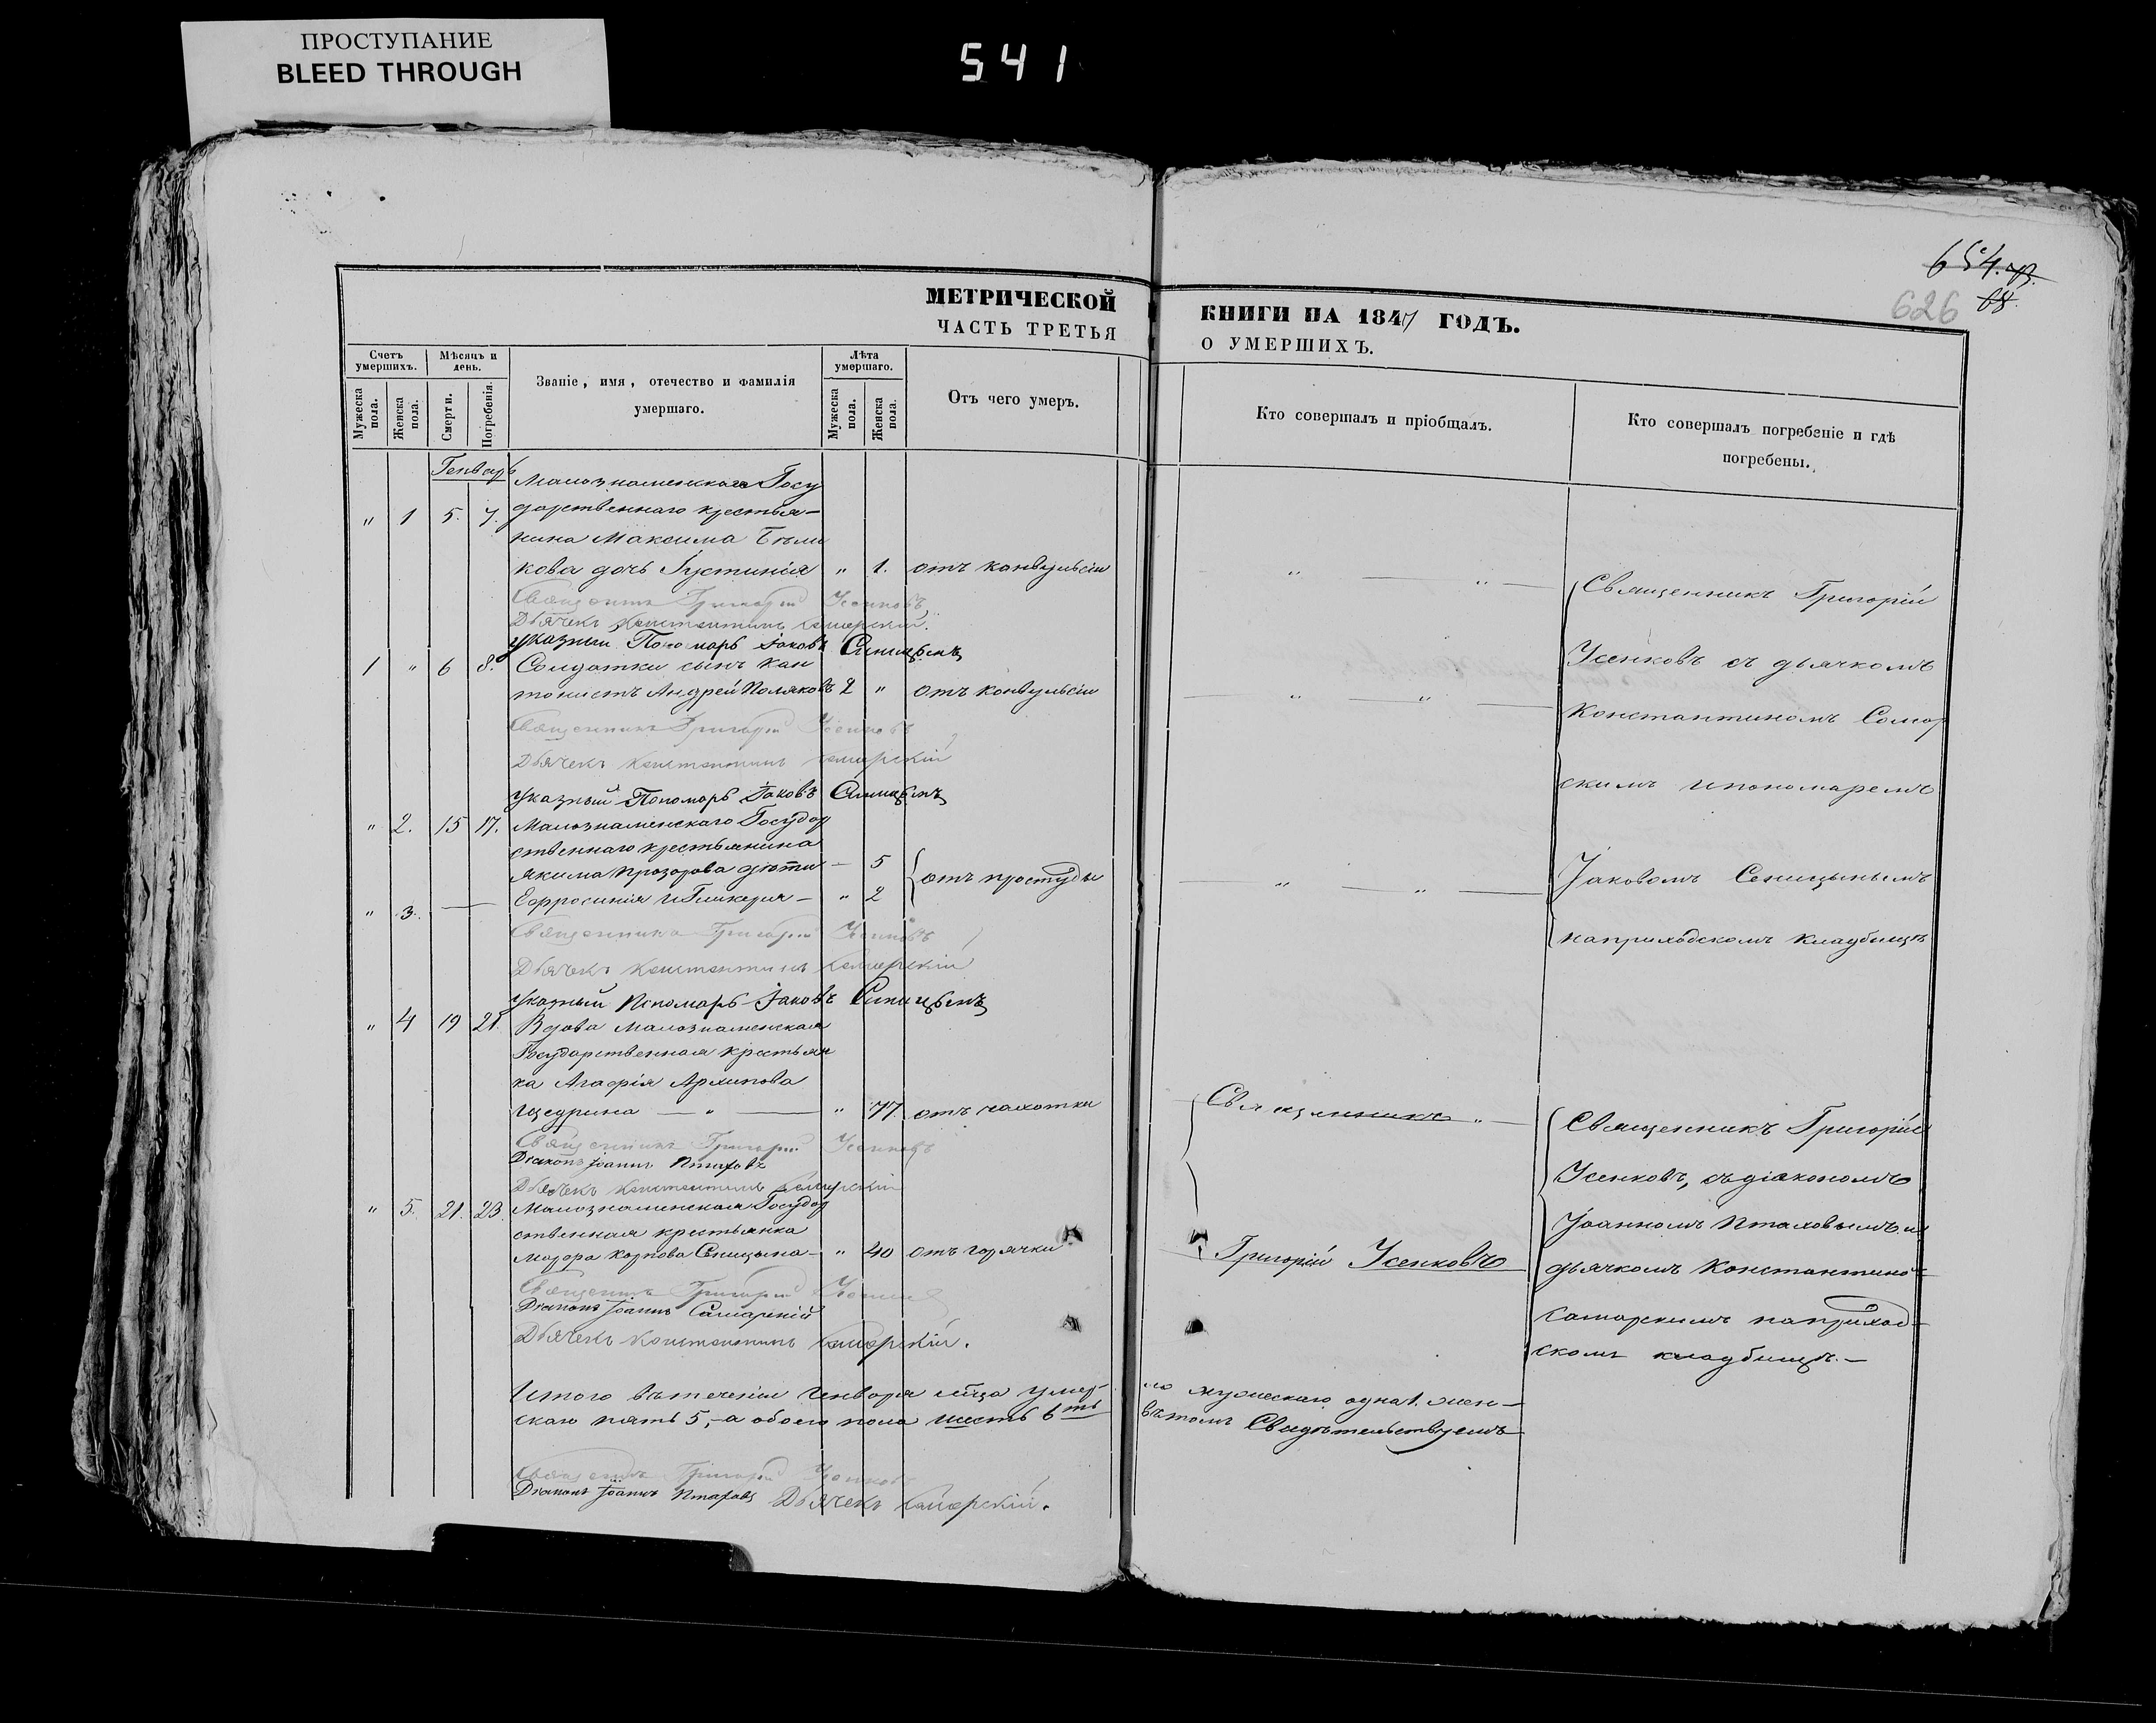 ПРОСТУПАНИЕ
BLEED THROUGH
541
654.
626 68
МЕТРИЧЕСКОЙ КНИГИ НА 1847 ГОДЪ.
ЧАСТЬ ТРЕТЬЯ О УМЕРШИХЪ.
Счетъ умершихъ.
Мужеска пола.
Женска пола.
Мѣсяцъ и день.
Смерти.
Погребенія.
Званіе, имя, отечество и фамилія
умершаго.
Лѣта умершаго.
Мужеска пола.
Женска пола.
Отъ чего умеръ.
Кто совершалъ и пріобщалъ.
Кто совершалъ погребеніе и гдѣ
погребены.
Генварь
Малознаменскаго Госу
" 1 5. 7. дарственнаго крестья-
нина Максима Бѣли
кова дочь Іустинія " 1. отъ конвульсіи " — " —
Священникъ Григорій Усенковъ
Дьячекъ Константинъ Самарскій.
указный Пономарь Іаковъ Синицынъ
1 " 6 8. Солдатки сынъ кан
тонистъ Андрей Поляковъ 2 " отъ конвульсіи — " — " —
Священникъ Григорій Усенковъ
Дьячекъ Константинъ Самарскій
указный Пономарь Іаковъ Синицынъ
" 2. 15 17. Малознаменскаго Государ
ственнаго крестьянина
Якима Прозорова дѣти — 5
" 3. — Ефросинія и Гликерія — " 2 отъ простуды — " — " —
Священникъ Григорій Усенковъ
Дьячекъ Константинъ Самарскій
указный Пономарь Іаковъ Синицынъ
Священникъ Григорій
Усенковъ съ дьячкомъ
Константиномъ Самар
скимъ и пономаремъ
Іаковомъ Синицынымъ
на приходскомъ кладбищѣ
" 4 19 21. Вдова Малознаменская
Государственная крестьян
ка Агафія Архипова
Щедрина — " — " 77. отъ чахотки
Священникъ Григорій Усенковъ
Діаконъ Іоаннъ Птаховъ
Дьячекъ Константинъ Самарскій
" 5. 21. 23. Малознаменская Государ
ственная крестьянка
Карпова Синицына — " 40 отъ горячки
Священникъ Григорій Усенковъ
Діаконъ Іоаннъ Самарскій
Дьячекъ Константинъ Самарскій.
Священникъ "
Григорій Усенковъ
Священникъ Григорій
Усенковъ, съ діакономъ
Іоанномъ Птаховымъ и
дьячкомъ Константино-
Самарскимъ на приход-
скомъ кладбищѣ.—
Итого въ теченіи Генваря м҃ца умер-ло мужескаго одна 1. жен-
скаго пять 5,-а обоего пола шесть 6ть въ томъ Свидѣтельствуемъ
Священникъ Григорій Усенковъ
Діаконъ Іоаннъ Птаховъ Дьячекъ Самарскій.